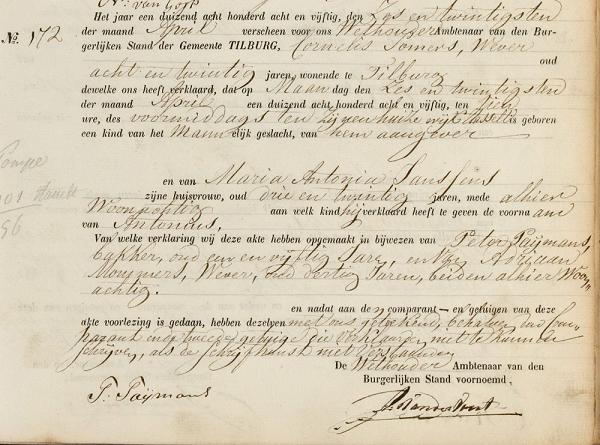 Het jaar een duizend acht honderd acht en vijftig, den Zes en twintigsten
No. 172 der maand April verscheen voor ons Wethouder Ambtenaar van den Bur-
gerlijken Stand der Gemeente TILBURG, Cornelis Somers, Wever
oud
acht en twintig jaren, wonende te Tilburg
dewelke ons heeft verklaard, dat op Maandag den Zes en twintigsten
der maand April een duizend acht honderd acht en vijftig, ten tien
ure, des voormiddags ten zijnen huize wijk Hasselt is geboren
een kind van het Mannelijk geslacht, van hem aangever
en van Maria Antonia Janssens
zijne huisvrouw, oud drie en twintig jaren, mede alhier
Woonachtig aan welk kind hij verklaard heeft te geven de voornaam
van Antonius,
Van welke verklaring wij deze akte hebben opgemaakt in bijwezen van Peter Paijmans,
bakker, oud een en vijftig Jaren, en van Adriaan
Mommers, Wever, oud dertig Jaren, beiden alhier Woon„
achtig.
en nadat aan de comparant en getuigen van deze
akte voorlezing is gedaan, hebben dezelven met ons getekend, behalve den Com„
parant en de tweede getuige die verklaarde, niet te kunnen
schrijven, als de schrijfkunst niet
De Wethouder Ambtenaar van den
Burgerlijken Stand voornoemd,
P. Paijmans